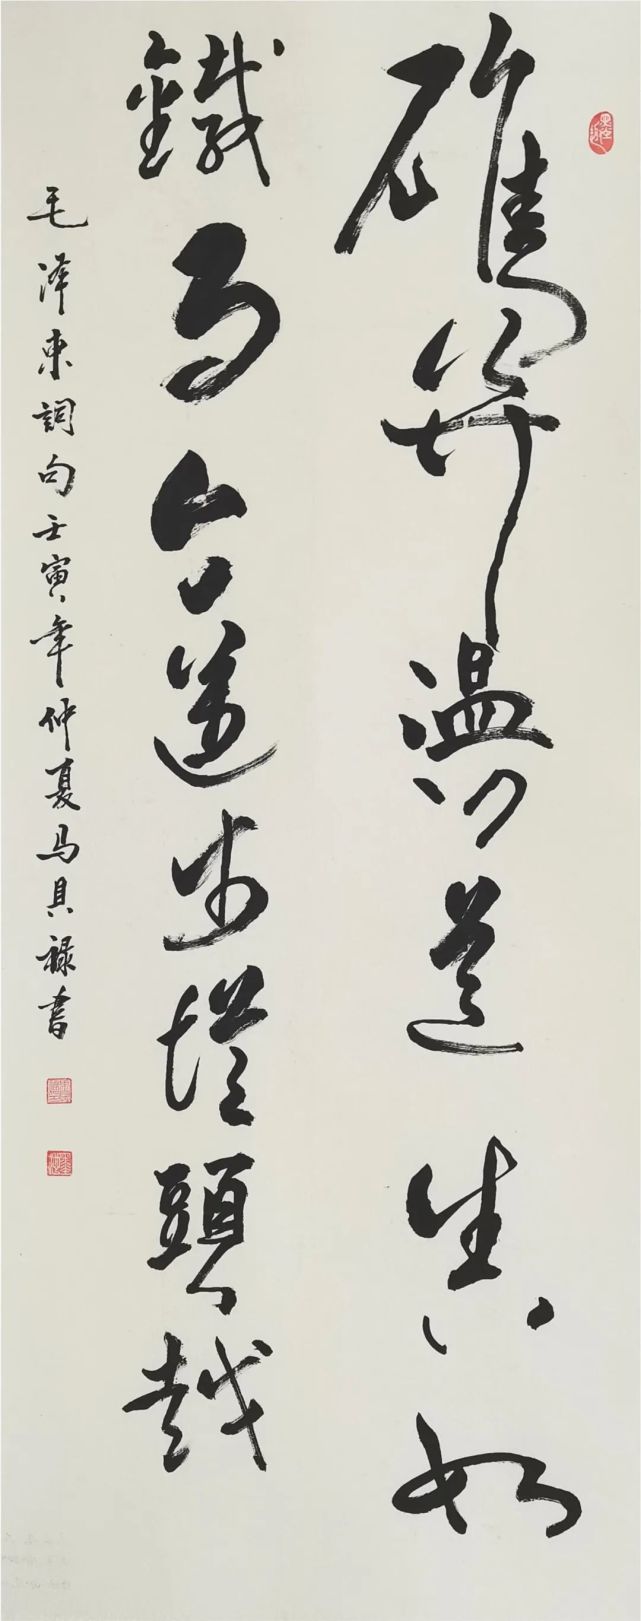 雄關漫道真如
鐵而今邁步從頭越
毛泽東詞句壬寅年仲夏马具禄書